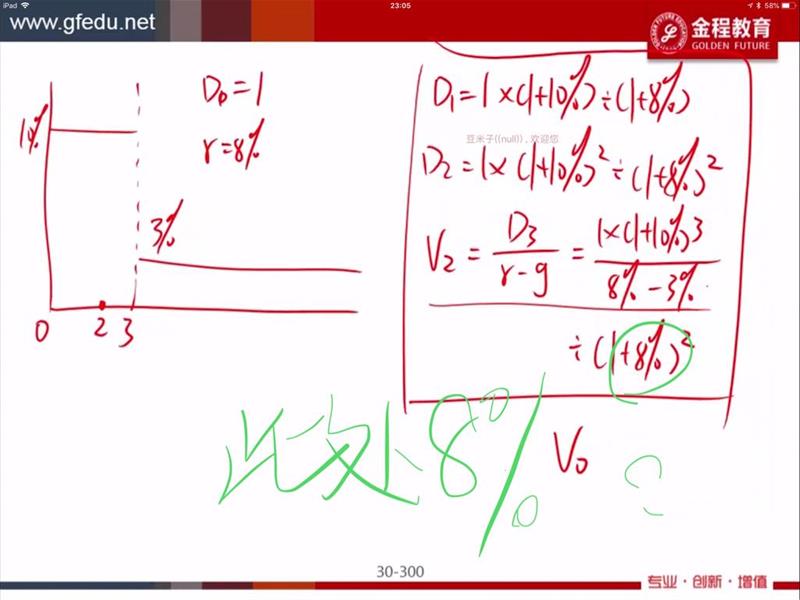 iPad 23:05 58%
www.gfedu.net
金程教育
GOLDEN FUTURE
D₀=1
10%
r=8%
3%
0 2 3
D₁=1×(1+10%)÷(1+8%)
豆米子((null)) , 欢迎您
D₂=1×(1+10%)²÷(1+8%)²
V₂ = D₃/(r-g) = 1×(1+10%)3/(8%-3%)
÷(1+8%)²
此次处8%
V₀
30-300
专业·创新·增值